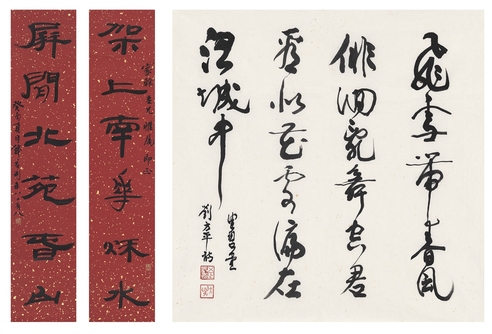 架上南華秋水
屏間北苑旾山
飛雪帶春風
徘徊亂舞空君
看似花處偏在
洛城中
劉方平詩